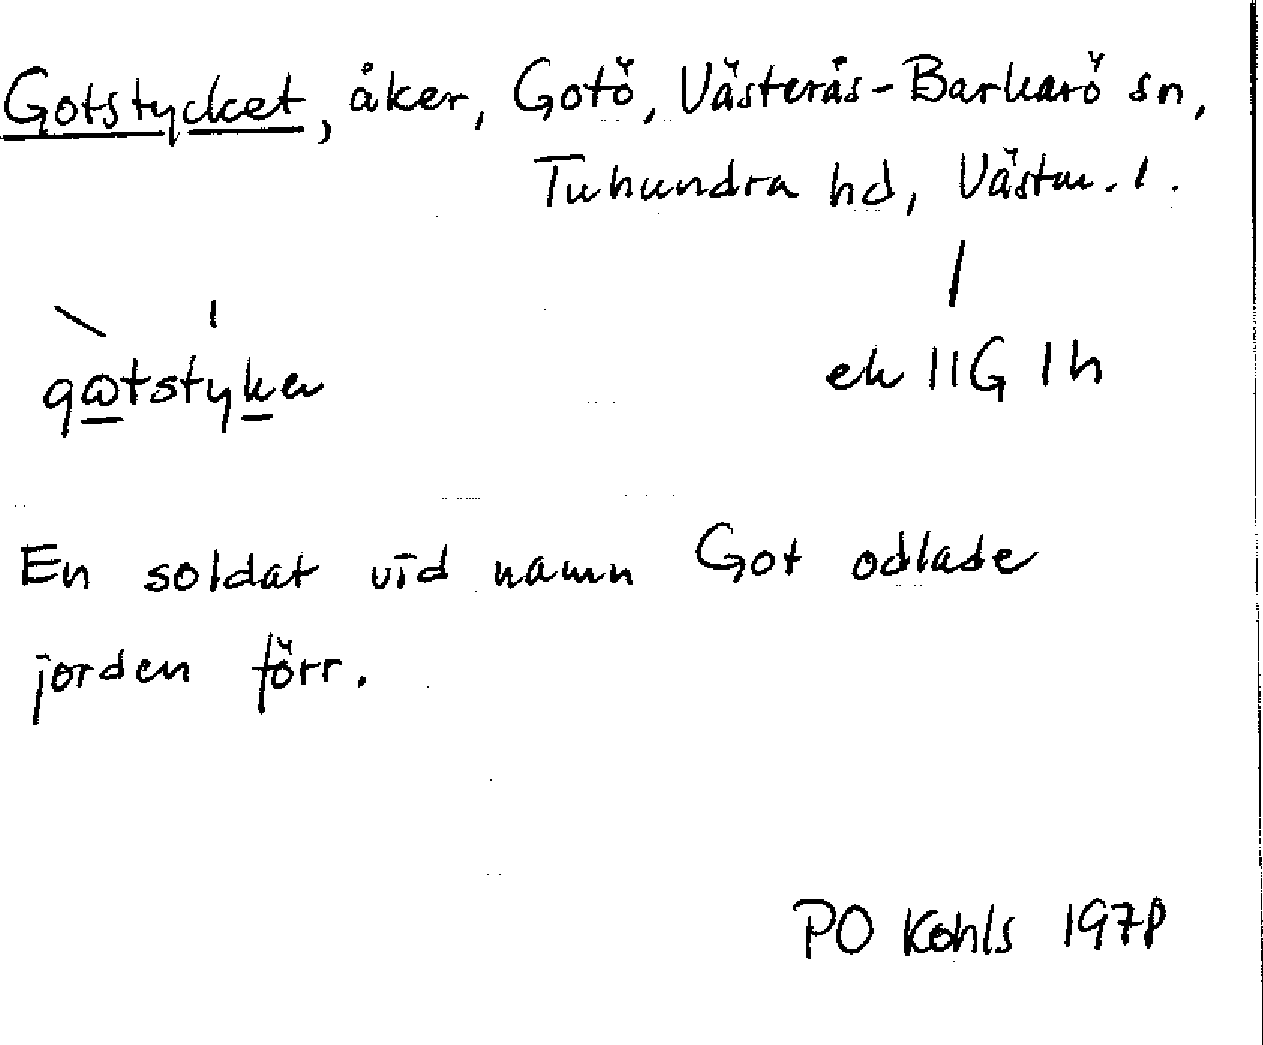 Gotstycket, åker, Gotö, Västerås-Barkarö sn,
Tuhundra hd, Västm. l.
ek 11G 1h
En soldat vid namn Got odlade
jorden förr.
PO Kohls 1978